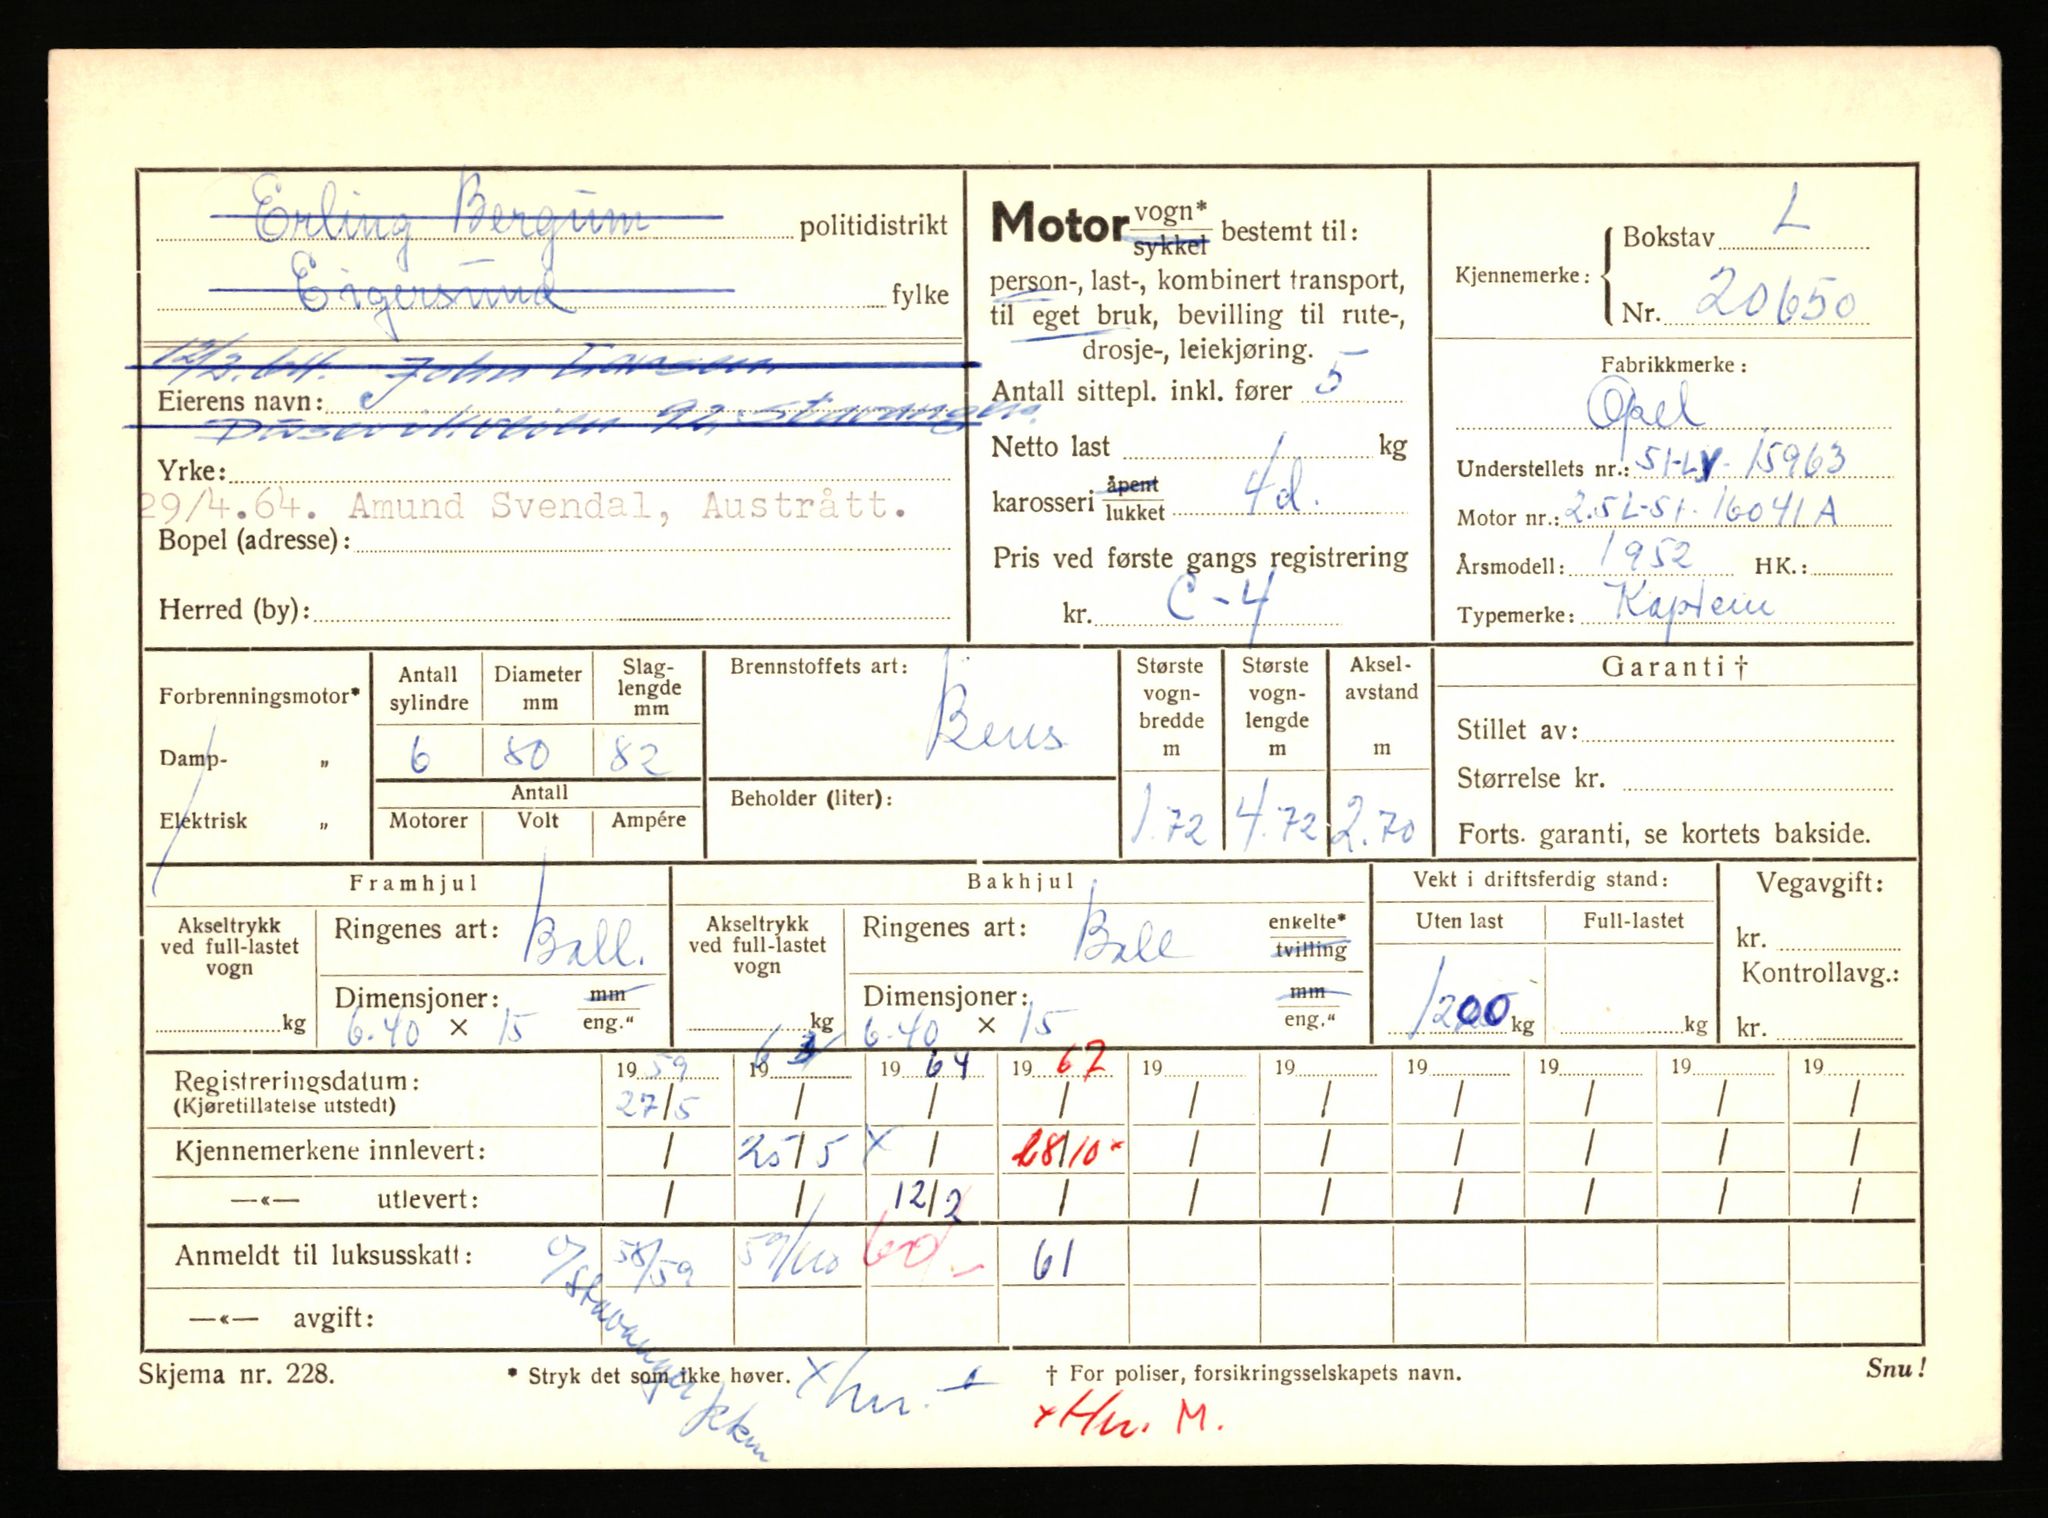 Erling Bergum politidistrikt
Eigersund fylke
12/2.64. John
Eierens navn:
92, Stavanger.
Yrke:
29/4.64. Amund Svendal, Austrått.
Bopel (adresse):
Herred (by):
Motor vogn* sykkel bestemt til:
person-, last-, kombinert transport,
til eget bruk, bevilling til rute-,
drosje-, leiekjøring.
Antall sittepl. inkl. fører 5
Netto last kg
karosseri åpent lukket 4d.
Pris ved første gangs registrering
kr. C-4
Kjennemerke: Bokstav L
Nr. 20650
Fabrikkmerke:
Opel
Understellets nr.: 51-LV-15963
Motor nr.: 2.5L-51-16041A
Årsmodell: 1952 HK.:
Typemerke: Kaptein
Forbrenningsmotor*
Damp- „
Elektrisk „
Antall sylindre Diameter mm Slag-lengde mm
6 80 82
Antall
Motorer Volt Ampére
Brennstoffets art: Bens
Beholder (liter):
Største vogn-bredde m Største vogn-lengde m Aksel-avstand m
1.72 4.72 2.70
Garanti †
Stillet av:
Størrelse kr.
Forts. garanti, se kortets bakside.
Framhjul
Akseltrykk ved full-lastet vogn
kg
Ringenes art: Ball.
Dimensjoner: mm eng."
6.40 × 15
Bakhjul
Akseltrykk ved full-lastet vogn
kg
Ringenes art: Ball enkelte* tvilling
Dimensjoner: mm eng."
6.40 × 15
Vekt i driftsferdig stand:
Uten last Full-lastet
1200 kg kg
Vegavgift:
kr.
Kontrollavg.:
kr.
Registreringsdatum: 1959 19 63 1964 1967 19 19 19 19 19 19
(Kjøretillatelse utstedt) 27/5 / / / / / / / / /
Kjennemerkene innlevert: / 25/5 x / 28/10 x / / / / / /
—«— utlevert: / / 12/2 / / / / / / /
Anmeldt til luksusskatt: 58/59 59/60 60 61
—«— avgift:
o/ Stavanger
Skjema nr. 228. * Stryk det som ikke høver. x hn. † For poliser, forsikringsselskapets navn. Snu!
x Hn. M.